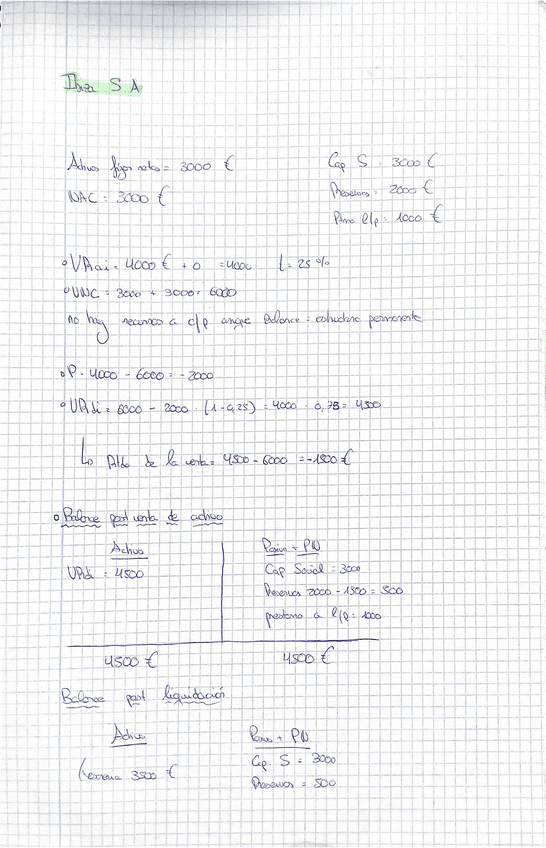 Ibiza S.A
Activos fijos netos = 3000 €
Cap S = 3000 €
NAC = 3000 €
Reservas = 2000 €
Pmo l/p = 1000 €
VAai = 4000 € + 0 = 4000 t = 25%
VNC = 3000 + 3000 = 6000
no hay recursos a c/p aunque Balance = estructura permanente
P = 4000 - 6000 = -2000
VAdi = 6000 - 2000 · (1-0,25) = 4000 · 0,75 = 4500
de la venta = 4500 - 6000 = -1500 €
Balance post venta de activo
Activo
Pasivo + PN
VAdi = 4500
Cap Social = 3000
Reservas 2000 - 1500 = 500
prestamo a l/p = 1000
4500 €
4500 €
Balance post liquidación
Activo
Pasivo + PN
Tesoreria 3500 €
Cap. S = 3000
Reservas = 500